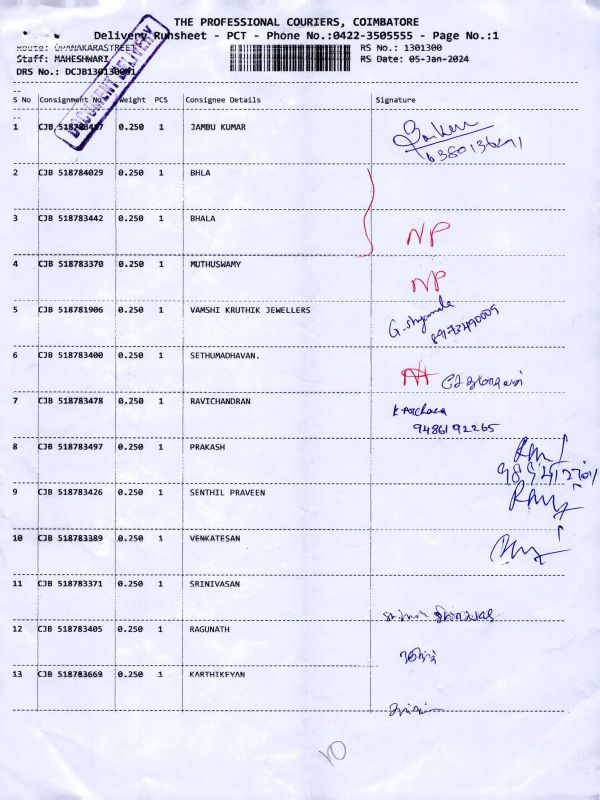 THE PROFESSIONAL COURIERS, COIMBATORE
Delivery Runsheet - PCT - Phone No.:0422-3505555 - Page No.:1
Route: OPANAKARASTREET RS No.: 1301300
Staff: MAHESHWARI RS Date: 05-Jan-2024
DRS No.:
DOCUMENT DELIVERY
S No Consignment No Weight PCS Consignee Details Signature
1 CJB 0.250 1 JAMBU KUMAR
2 CJB 518784029 0.250 1 BHLA
3 CJB 518783442 0.250 1 BHALA
NP
4 CJB 518783370 0.250 1 MUTHUSWAMY
NP
5 CJB 518781906 0.250 1 VAMSHI KRUTHIK JEWELLERS
G. Shyamala
6 CJB 518783400 0.250 1 SETHUMADHAVAN.
7 CJB 518783478 0.250 1 RAVICHANDRAN
9486192265
8 CJB 518783497 0.250 1 PRAKASH
9 CJB 518783426 0.250 1 SENTHIL PRAVEEN
10 CJB 518783389 0.250 1 VENKATESAN
11 CJB 518783371 0.250 1 SRINIVASAN
12 CJB 518783405 0.250 1 RAGUNATH
13 CJB 518783669 0.250 1 KARTHIKEYAN
10